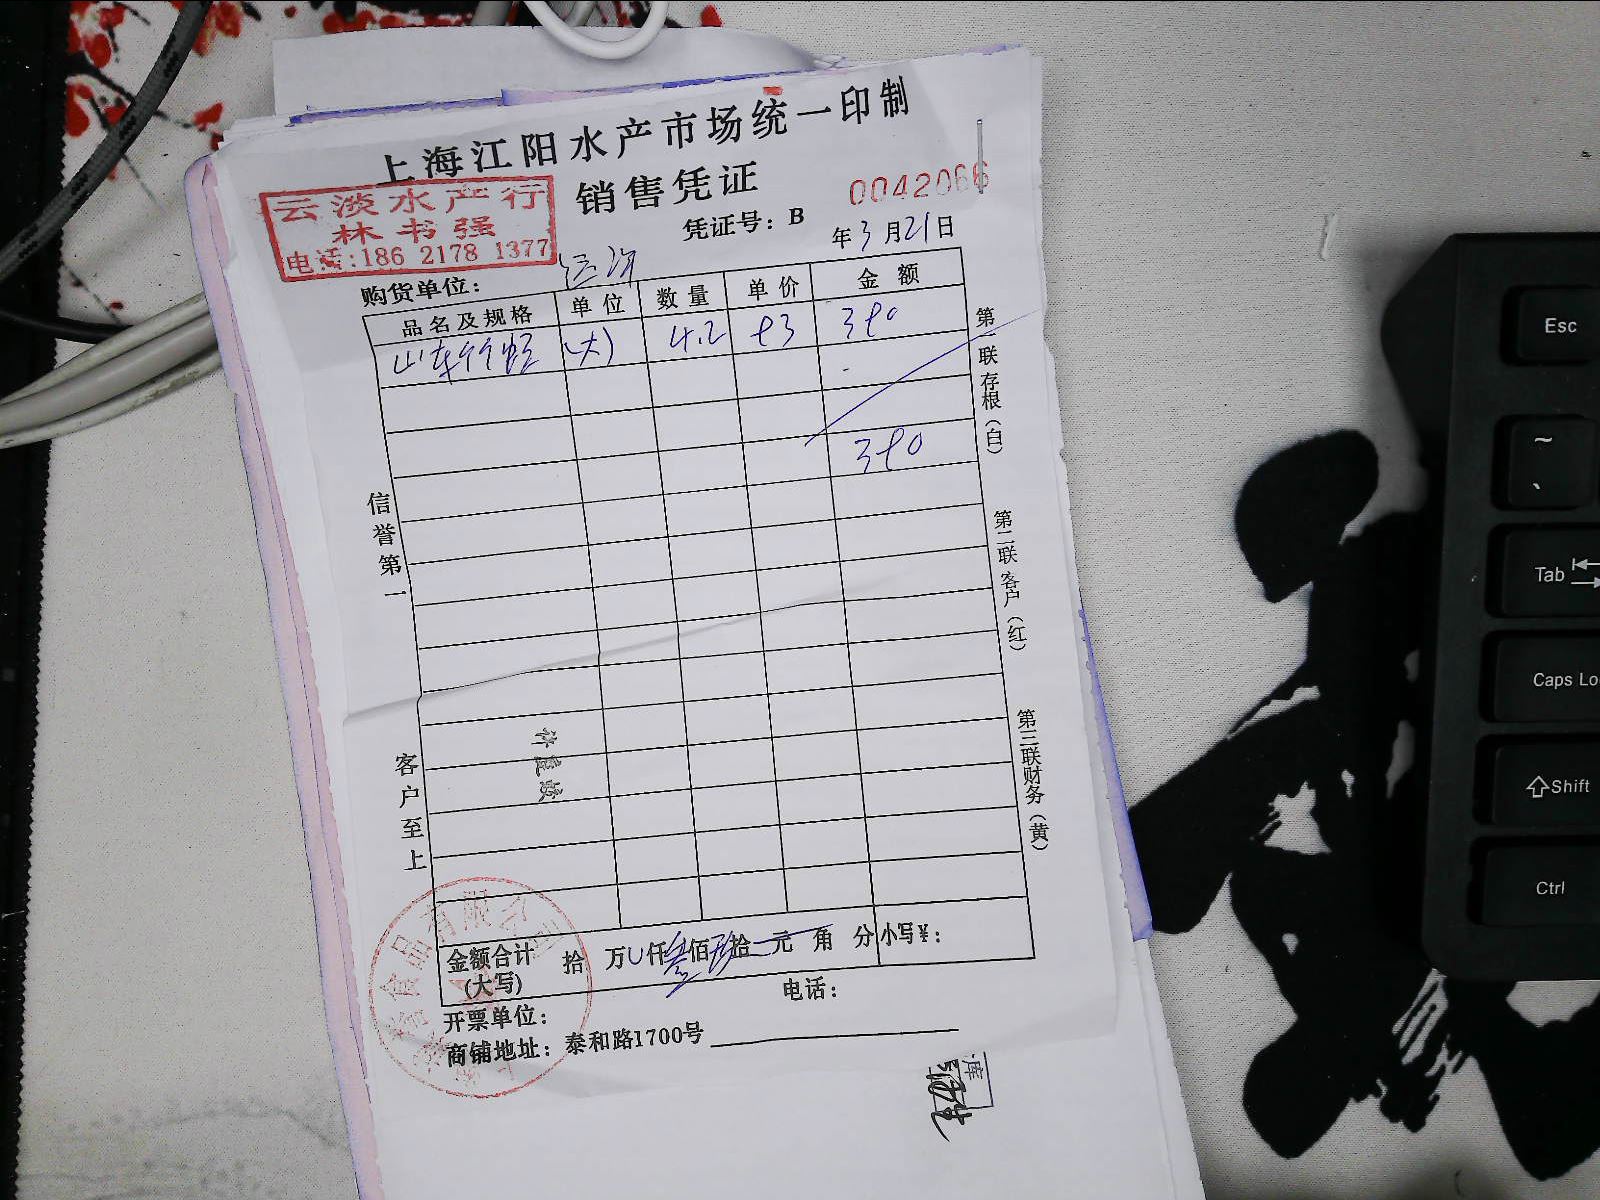 上海江阳水产市场统一印制
销售凭证
0042066
凭证号：B
云淡水产行
林书强
电话:186 2178 1377
年3月21日
购货单位：
品名及规格 单位 数量 单价 金额
山东 (大) 4.2 93 390
390
第一联存根（白）
第二联客户（红）
第三联财务（黄）
信誉第一
客户至上
金额合计(大写) 拾 万 仟叁佰玖拾 元 角 分 小写¥：
开票单位： 电话：
商铺地址：泰和路1700号
食品有限公司
库
Esc
~
、
Tab
Caps Lo
Shift
Ctrl